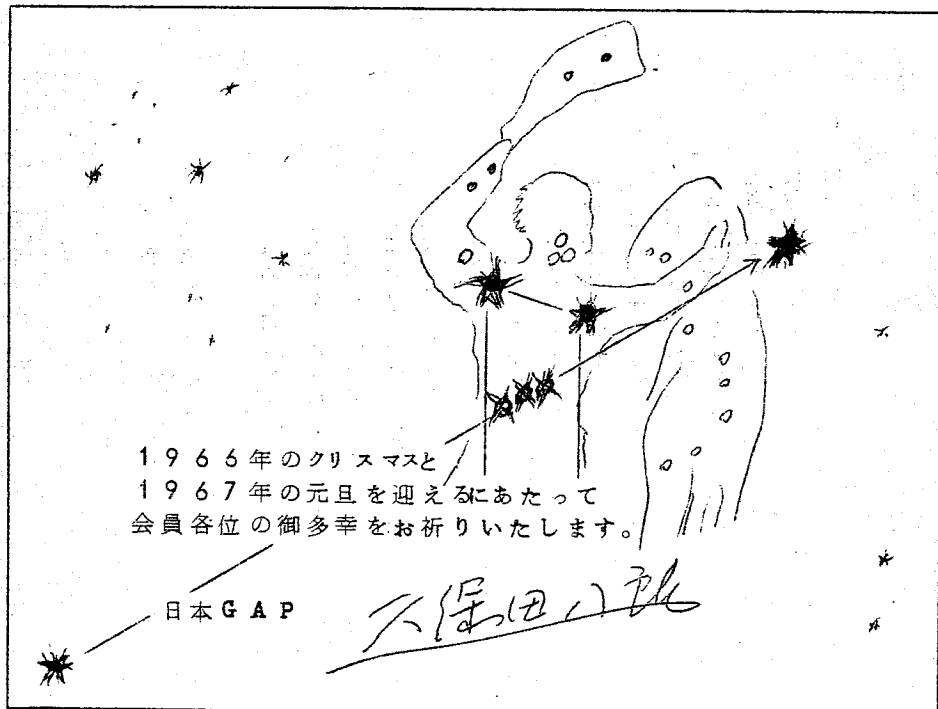 1966年のクリスマスと
1967年の元旦を迎えるにあたって
会員各位の御多幸をお祈りいたします。
日本GAP
久保田八郎